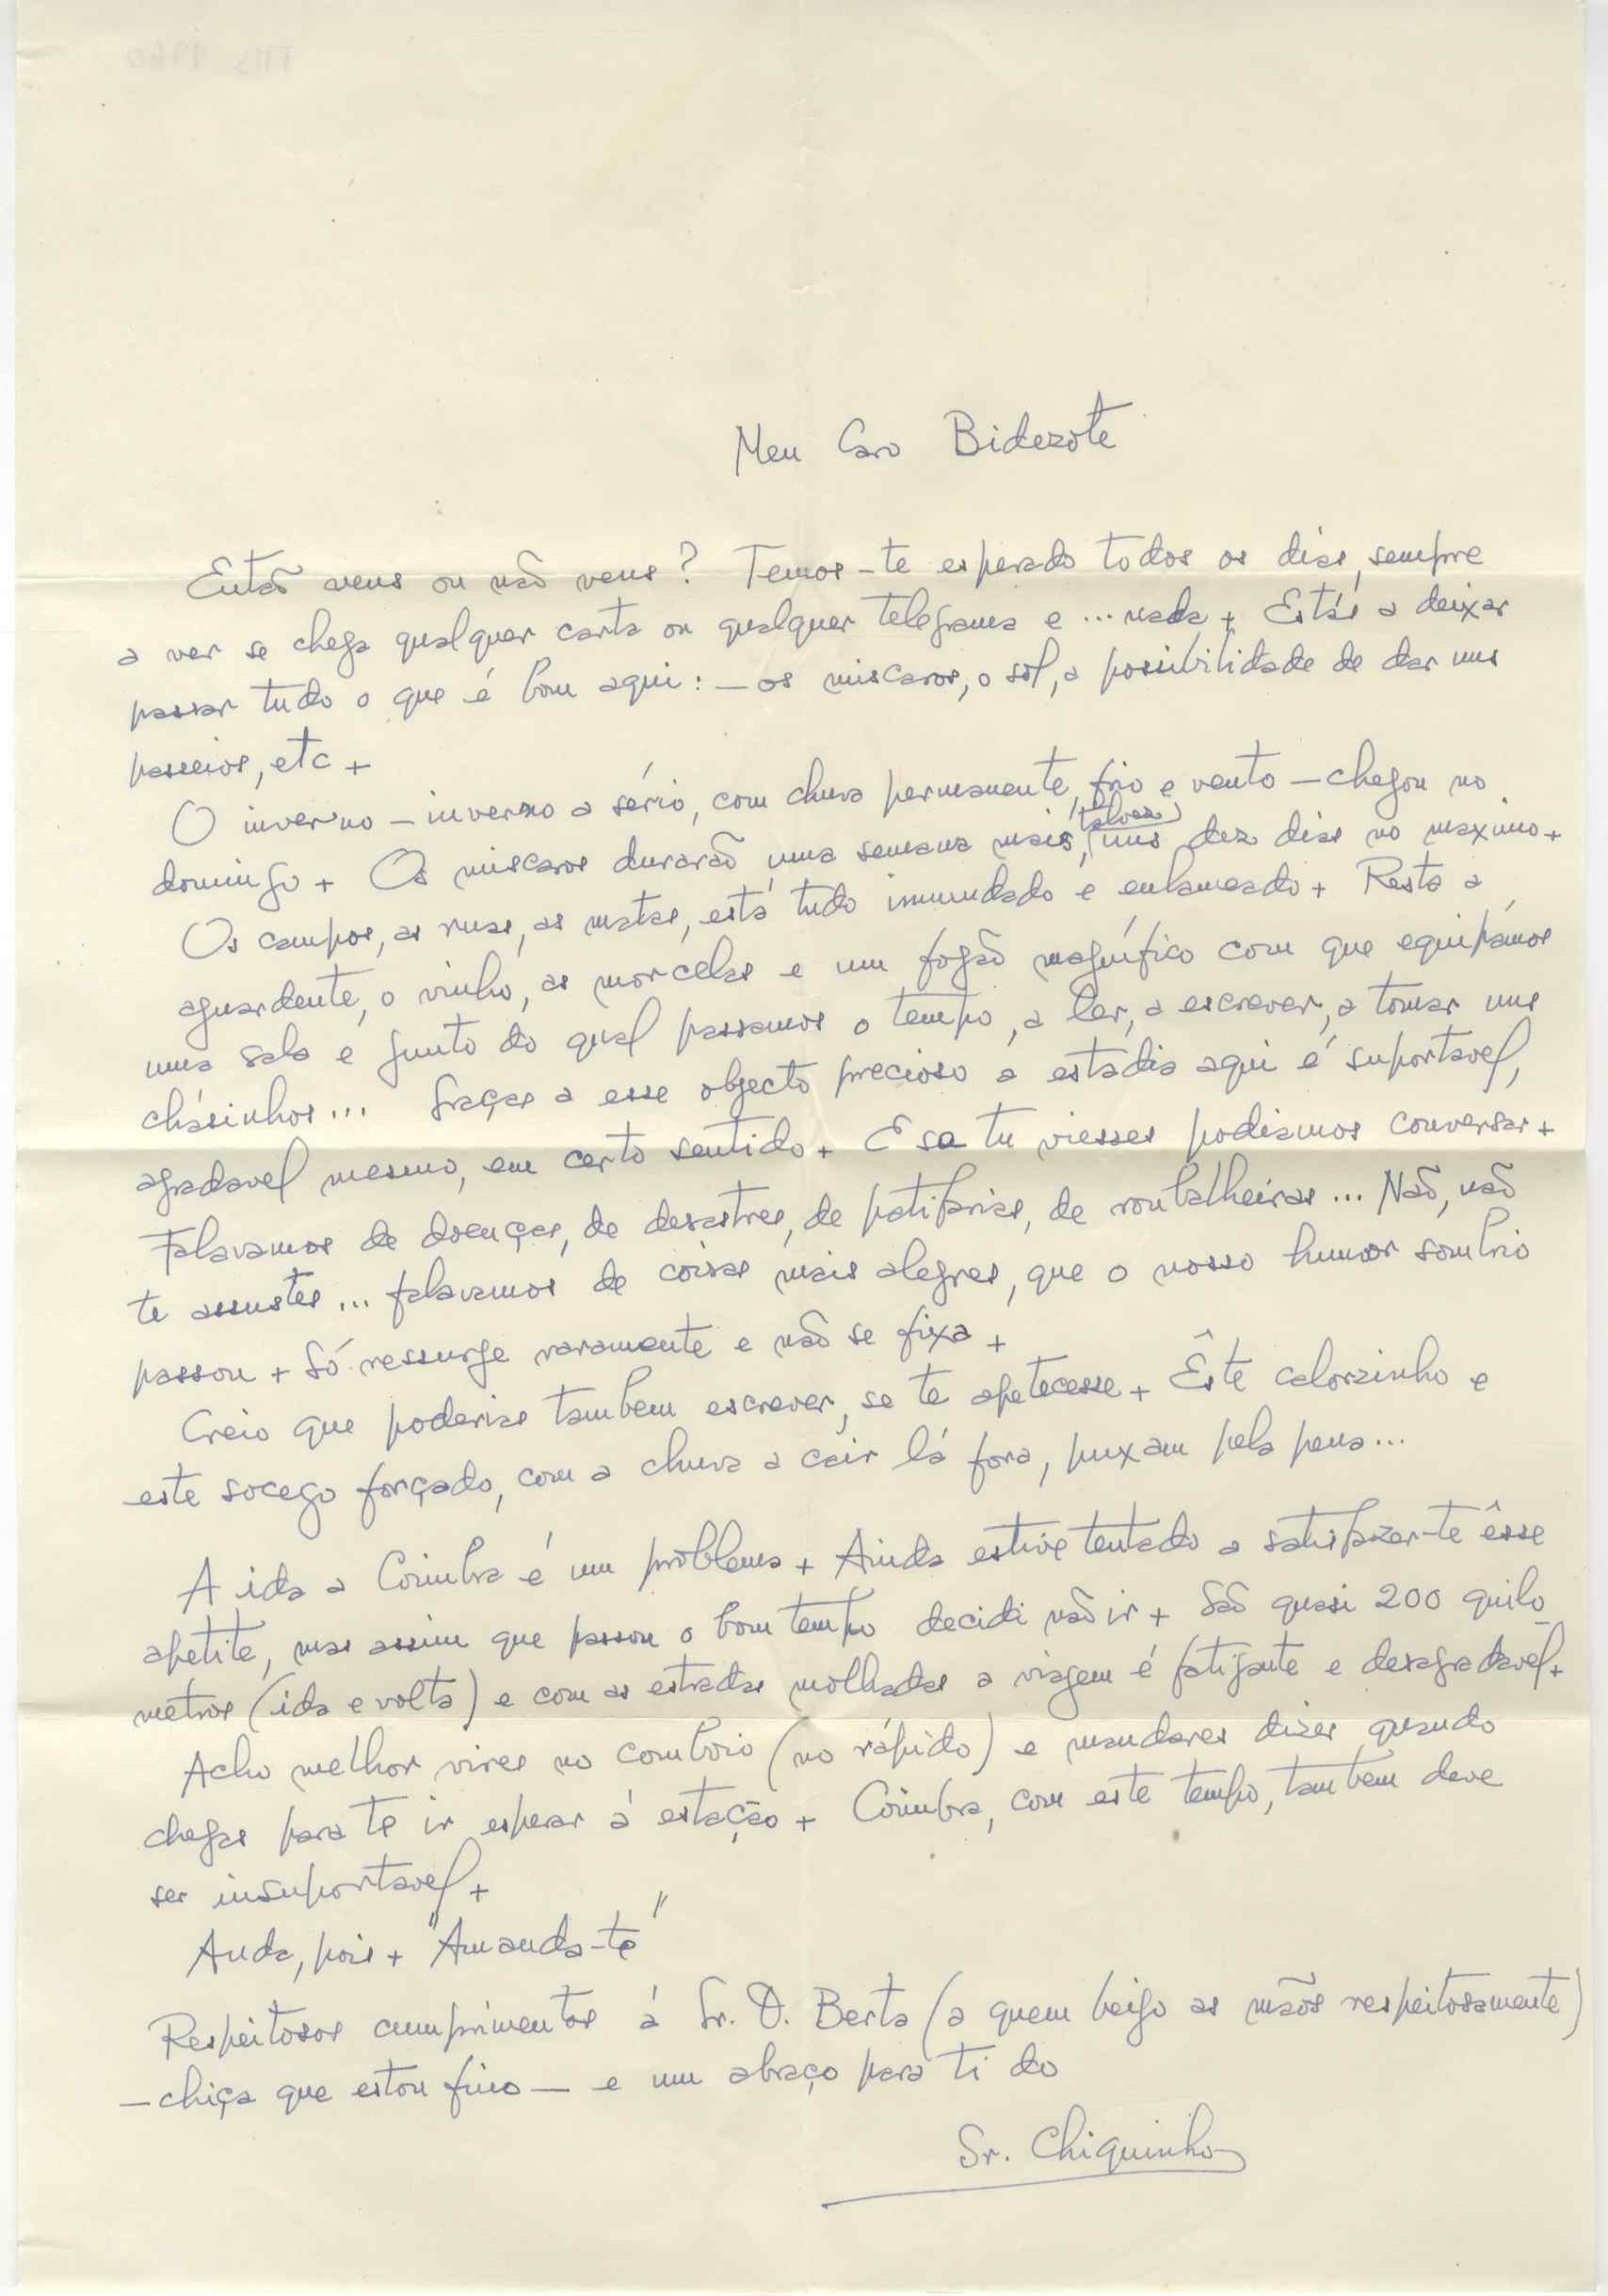 Meu Caro Biderote
Então vens ou não vens? Temos-te esperado todos os dias, sempre
a ver se chega qualquer carta ou qualquer telegrama e ... nada + Estás a deixar
passar tudo o que é bom aqui: - os miscaros, o sol, a possibilidade de dar uns
passeios, etc +
O inverno - inverno a sério, com chuva permanente, frio e vento - chegou no
domingo + Os miscaros durarão uma semana mais, talvez uns dez dias no maximo +
Os campos, as ruas, as matas, está tudo inundado e enlameado + Resta a
aguardente, o vinho, as morcelas e um fogão magnífico com que equipámos
uma sala e junto do qual passamos o tempo, a ler, a escrever, a tomar uns
chásinhos ... Graças a esse objecto precioso a estadia aqui é suportavel,
agradavel mesmo, em certo sentido + E se tu viesses podiamos conversar +
Falavamos de doenças, de desastres, de patifarias, de roubalheiras ... Não, não
te assustes ... falavamos de coisas mais alegres, que o nosso humor sombrio
passou + Só ressurge raramente e não se fixa +
Creio que poderias tambem escrever, se te apetecesse + Êste calorzinho e
este socego forçado, com a chuva a cair lá fora, puxam pela pena ...
A ida a Coimbra é um problema + Ainda estive tentado a satisfazer-te êsse
apetite, mas assim que passou o bom tempo decidi não ir + São quasi 200 quilo
metros (ida e volta) e com as estradas molhadas a viagem é fatigante e desagradavel +
Acho melhor vires no comboio (no rápido) e mandares dizer quando
chegas para te ir esperar á estação + Coimbra, com este tempo, tambem deve
ser insuportavel +
Anda, pois + "Amanda-te"
Respeitosos cumprimentos á Sr. D. Berta (a quem beijo as mãos respeitosamente)
- chiça que estou fino - e um abraço para ti do
Sr. Chiquinho